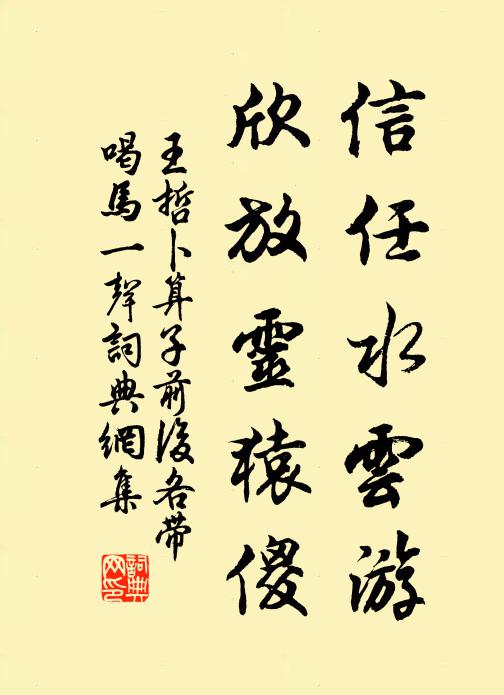 信任水雲游
欣放靈猿傻
王哲卜算子前後各帶
喝馬一聲詞典網集
詞典
网印